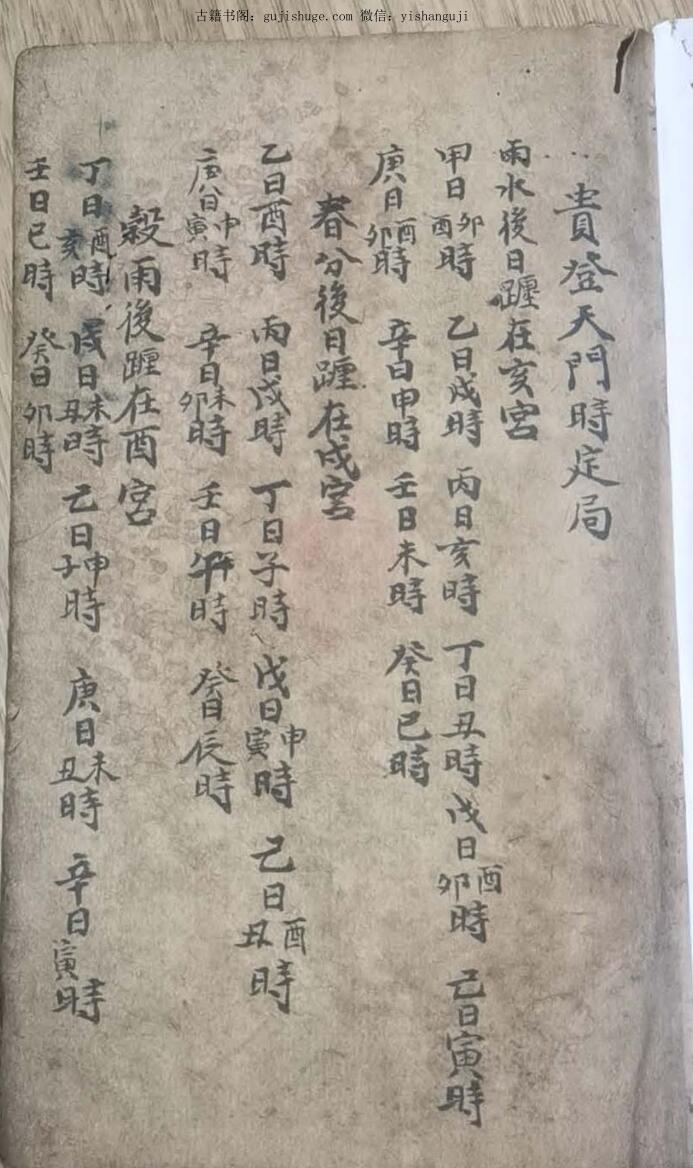 古籍书阁：gujishuge.com 微信：yishanguji
貴登天門時定局
雨水後日躔在亥宮
甲日卯酉時 乙日戌時 丙日亥時 丁日丑時 戊日酉卯時 己日寅時
庚日酉卯時 辛日申時 壬日未時 癸日巳時
春分後日躔在戌宮
乙日酉時 丙日戌時 丁日子時 戊日申寅時 己日酉丑時
庚日申寅時 辛日未卯時 壬日午時 癸日辰時
穀雨後躔在酉宮
丁日酉亥時 戊日未丑時 己日申子時 庚日未丑時 辛日寅時
壬日巳時 癸日卯時